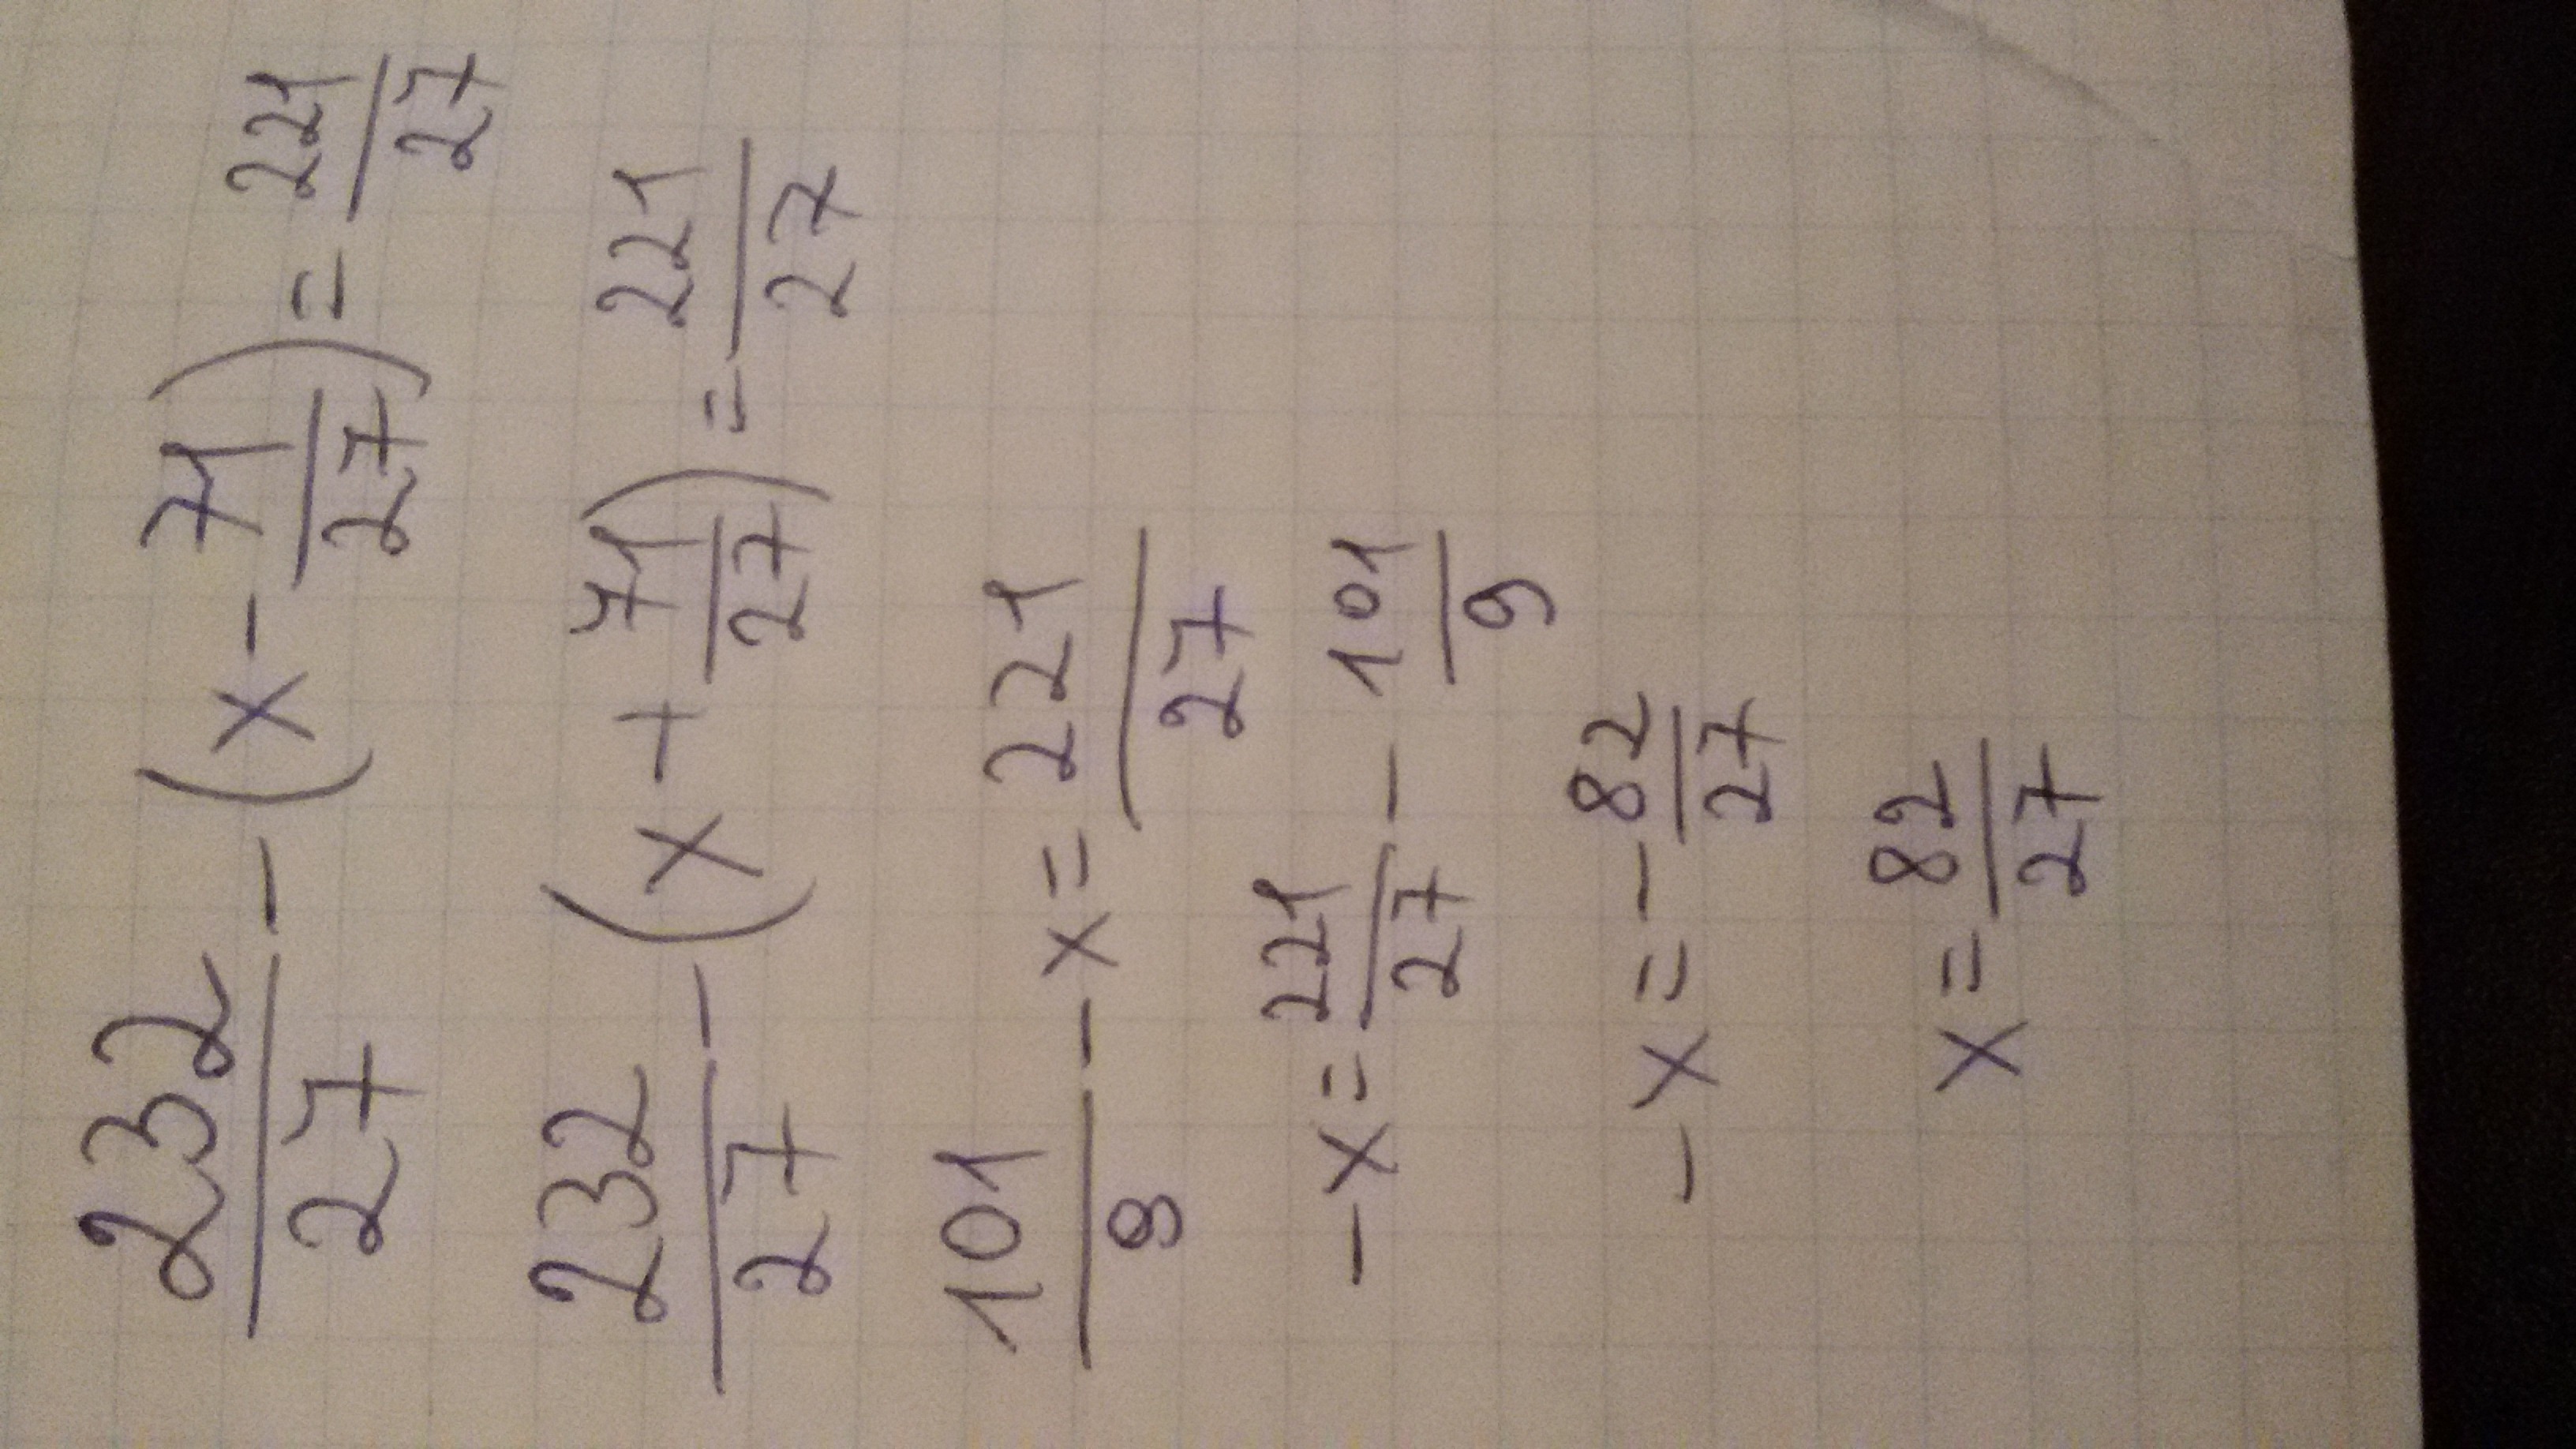 232/27 - (x - 71/27) = 221/27
232/27 - (x + 71/27) = 221/27
101/9 - x = 221/27
-x = 221/27 - 101/9
-x = - 82/27
x = 82/27